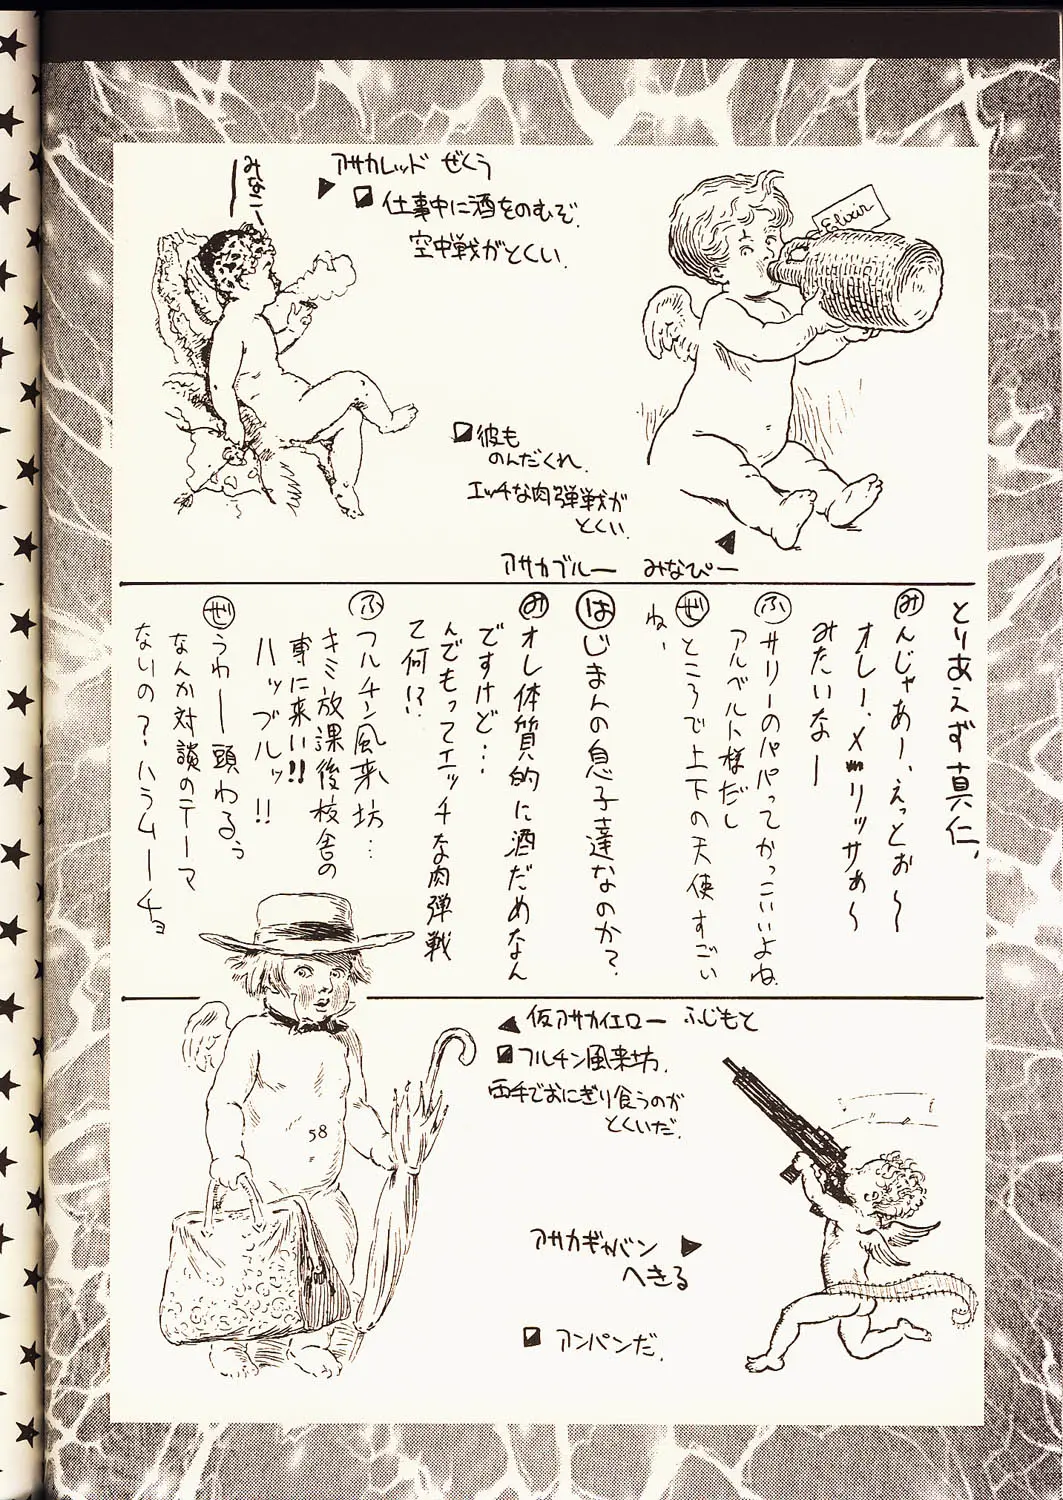 アサカレッド ぜくう
仕事中に酒をのむぞ。
空中戦がとくい。
みなこー、
Elixir
彼も
のんだくれ。
エッチな肉弾戦が
とくい。
アサカブルー みなぴー
とりあえず真仁、
みんじゃあー、えっとぉ〜
オレー、メリッサぁ〜
みたいなー
ふサリーのパパってかっこいいよね。
アルベルト様だし
ぜところで上下の天使すごい
ね、
はじまんの息子達なのか？
みオレ体質的に酒だめなん
ですけど…
んでもってエッチな肉弾戦
て何!?
ふフルチン風来坊…
キミ放課後校舎の
裏に来い!!
ハッブルッ!!
ぜうわー頭わるぅ
なんか対談のテーマ
ないの？ハラムーチョ
仮アサカイエロー ふじもと
フルチン風来坊。
両手でおにぎり食うのが
とくいだ。
58
アサカギャバン
へきる
アンパンだ。